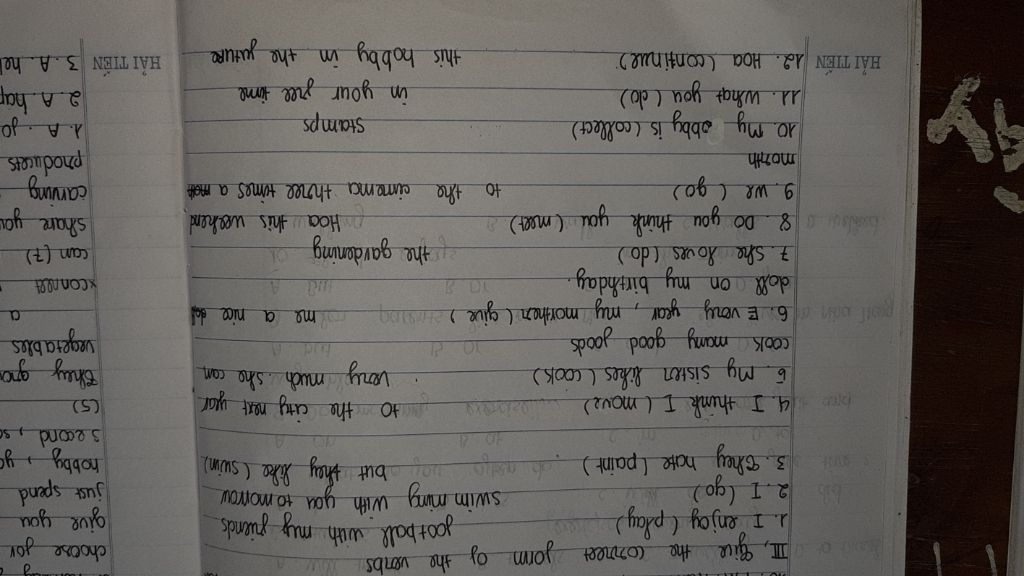 III, Give the correct form of the verbs
1. I enjoy (play) football with my friends
2. I (go) swimming with you tomorrow
3. They hate (paint) but they like (swim)
4. I think I (move) to the city next year
5. My sister likes (cook) very much. she can
cook many good goods
6. E very year, my morther (give) me a nice
doll on my birthday.
7. she loves (do) the gardening
8. Do you think you (meet) Hoa this weekend
9. we (go) to the cinema three times a
month
10. My obby is (collect) stamps
11. What you (do) in your free time
12. Hoa (continue) this hobby in the future
HẢI TIẾN
choose for
give you
just spend
hobby, yo
second, so
(5)
They grow
vegetables
a
connect
can (7)
share you
carving
producers
1. A. jo
2. A. hap
3. A. hel
HẢI TIẾN